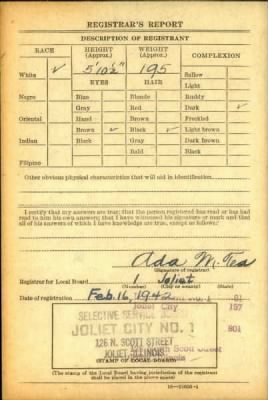 REGISTRAR'S REPORT
DESCRIPTION OF REGISTRANT
RACE
HEIGHT
(Approx.)
WEIGHT
(Approx.)
COMPLEXION
White ✓
5' 10½"
195
Sallow
EYES
HAIR
Light
Negro
Blue
Blonde
Ruddy
Gray
Red
Dark ✓
Oriental
Hazel
Brown
Freckled
Brown ✓
Black ✓
Light brown
Indian
Black
Gray
Dark brown
Bald
Black
Filipino
Other obvious physical characteristics that will aid in identification
I certify that my answers are true; that the person registered has read or has had
read to him his own answers; that I have witnessed his signature or mark and that
all of his answers of which I have knowledge are true, except as follows:
Ada M.
(Signature of registrar)
Registrar for Local Board 1 Joliet
(Number) (City or county)
Date of registration Feb. 16, 1942
SELECTIVE SERVICE
JOLIET CITY NO. 1
126 N. SCOTT STREET
JOLIET, ILLINOIS
197
801
(STAMP OF LOCAL BOARD)
(The stamp of the Local Board having jurisdiction of the registrant
shall be placed in the above space)